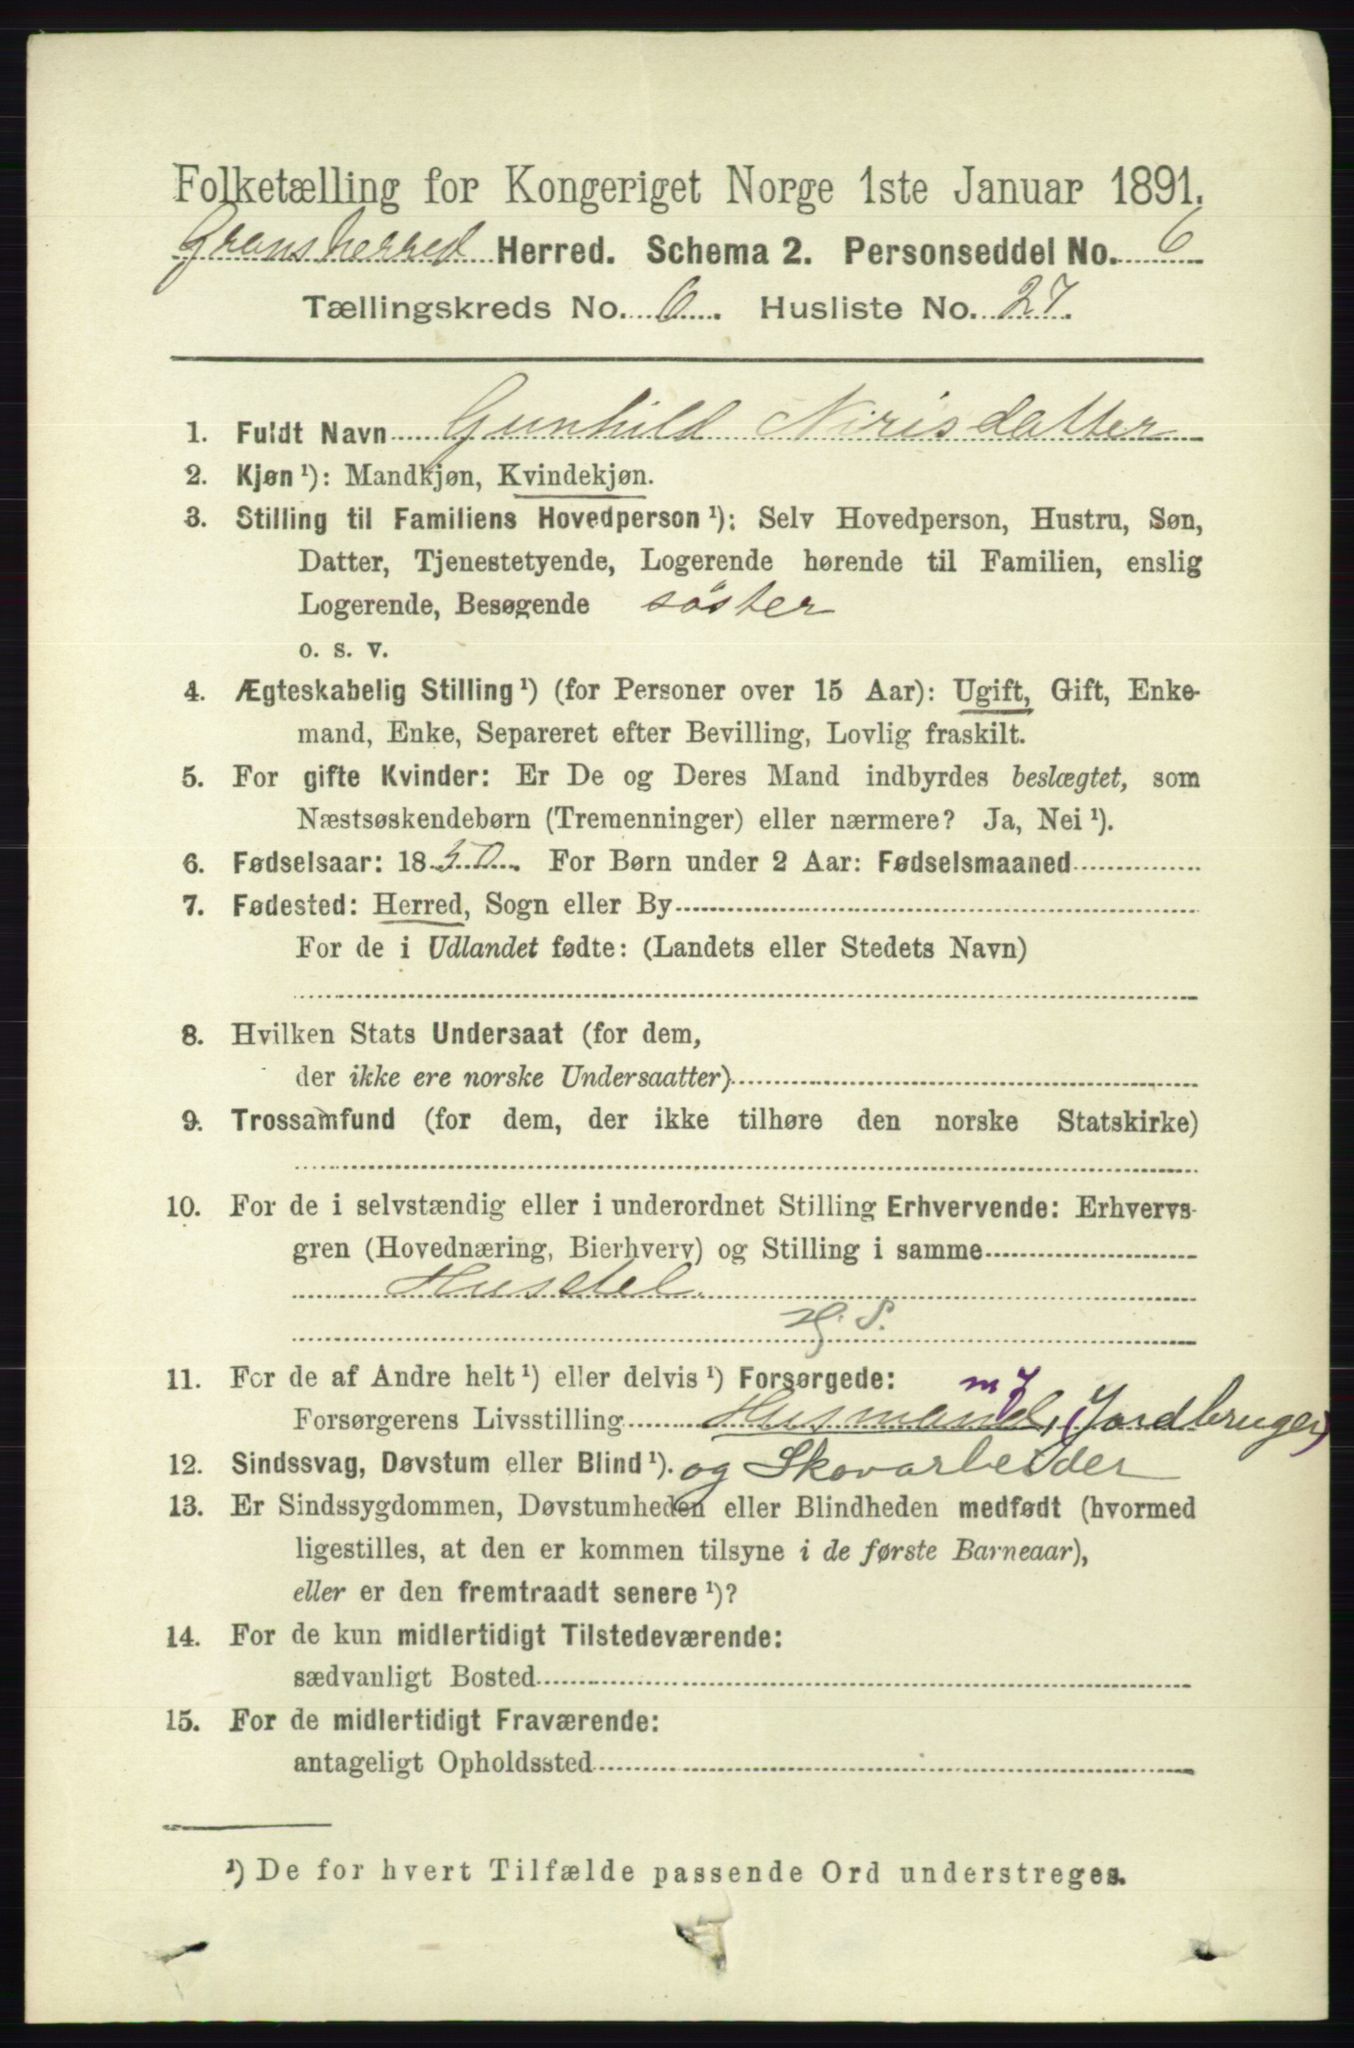 Folketælling for Kongeriget Norge 1ste Januar 1891.
Gransherred Herred. Schema 2. Personseddel No. 6
Tællingskreds No. 6. Husliste No. 27.
1. Fuldt Navn Gunhild Nirisdatter
2. Kjøn ¹): Mandkjøn, Kvindekjøn.
3. Stilling til Familiens Hovedperson ¹): Selv Hovedperson, Hustru, Søn,
Datter, Tjenestetyende, Logerende hørende til Familien, enslig
Logerende, Besøgende söster
o. s. v.
4. Ægteskabelig Stilling ¹) (for Personer over 15 Aar): Ugift, Gift, Enke-
mand, Enke, Separeret efter Bevilling, Lovlig fraskilt.
5. For gifte Kvinder: Er De og Deres Mand indbyrdes beslægtet, som
Næstsøskendebørn (Tremenninger) eller nærmere? Ja, Nei ¹).
6. Fødselsaar: 1850. For Børn under 2 Aar: Fødselsmaaned
7. Fødested: Herred, Sogn eller By
For de i Udlandet fødte: (Landets eller Stedets Navn)
8. Hvilken Stats Undersaat (for dem,
der ikke ere norske Undersaatter)
9. Trossamfund (for dem, der ikke tilhøre den norske Statskirke)
10. For de i selvstændig eller i underordnet Stilling Erhvervende: Erhvervs-
gren (Hovednæring, Bierhverv) og Stilling i samme
Husstel
11. For de af Andre helt ¹) eller delvis ¹) Forsørgede:
Forsørgerens Livsstilling Husmand, (Jordbruger)
12. Sindssvag, Døvstum eller Blind ¹). og Skovarbeider
13. Er Sindssygdommen, Døvstumheden eller Blindheden medfødt (hvormed
ligestilles, at den er kommen tilsyne i de første Barneaar),
eller er den fremtraadt senere ¹)?
14. For de kun midlertidigt Tilstedeværende:
sædvanligt Bosted
15. For de midlertidigt Fraværende:
antageligt Opholdssted
¹) De for hvert Tilfælde passende Ord understreges.